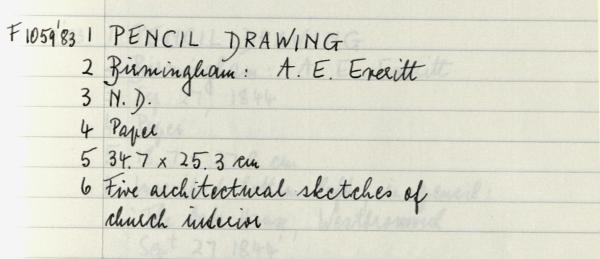 F1059'83 1 PENCIL DRAWING
2 Birmingham: A. E. Everitt
3 N.D.
4 Paper
5 34.7 x 25.3 cm
6 Five architectural sketches of
church interior